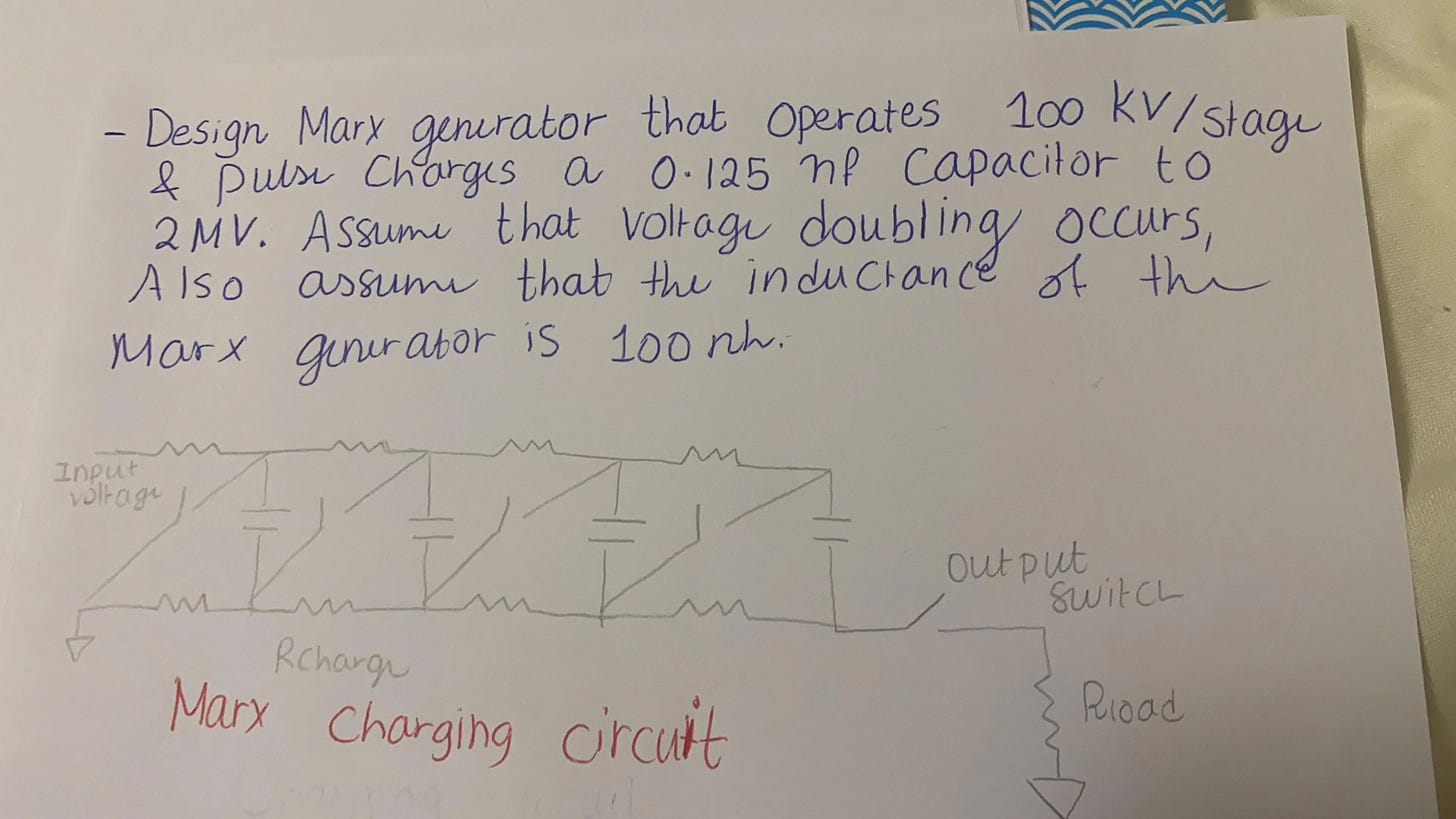 - Design Marx generator that operates 100 KV/stage
& pulse charges a 0.125 nf capacitor to
2MV. Assume that voltage doubling occurs,
Also assume that the inductance of the
Marx generator is 100 nh.
Input
voltage
output
switch
Rcharge
Rload
Marx charging circuit